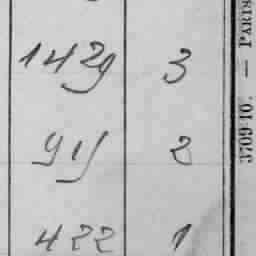 1429 3
911 2
422 1
3709-10. — PARIS